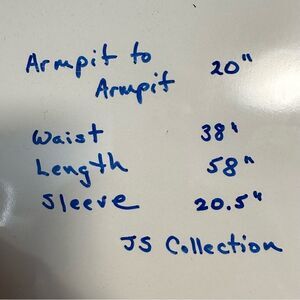 Armpit to 20"
Armpit
Waist 38"
Length 58"
Sleeve 20.5"
JS Collection